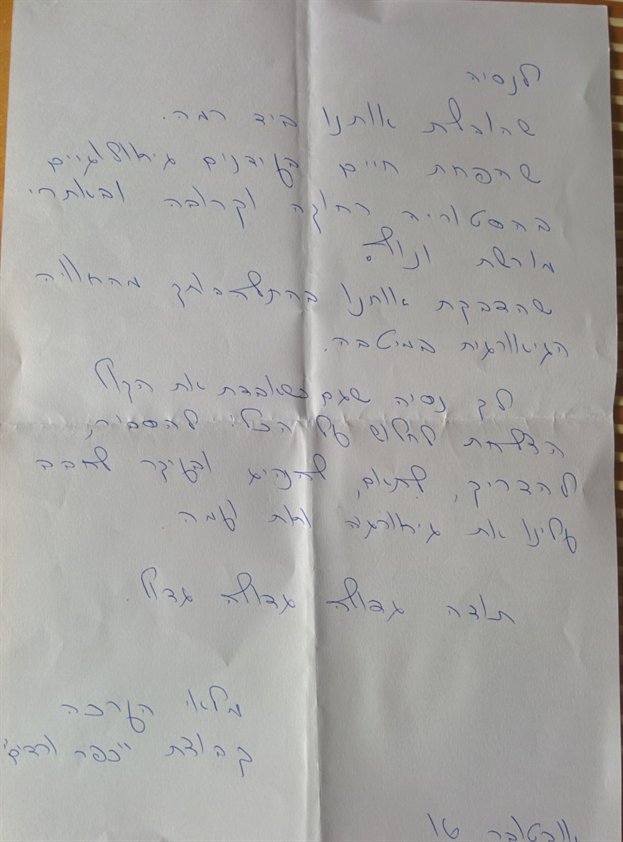 לנסיה
שהובלת אותנו ביד רמה.
שהפחת חיים בעידנים גיאולוגיים
בהסטוריה רחוקה וקרובה ובאתרי
מורשת ונוף.
שהדבקת אותנו בהתלהבותך מהחוויה
הגיאורגית במיטבה.
לך נסיה שגם כשאבדת את הקול
הצלחת לחלוש על הכלי להסביר,
להדריך, לתאם, להנהיג ובעיקר לחבב
עלינו את גיאורגיה ואת עמה
תודה גדולה גדולה גדול.
מלאי הערכה
קבוצת "כפר ורדים"
אוקטובר 16